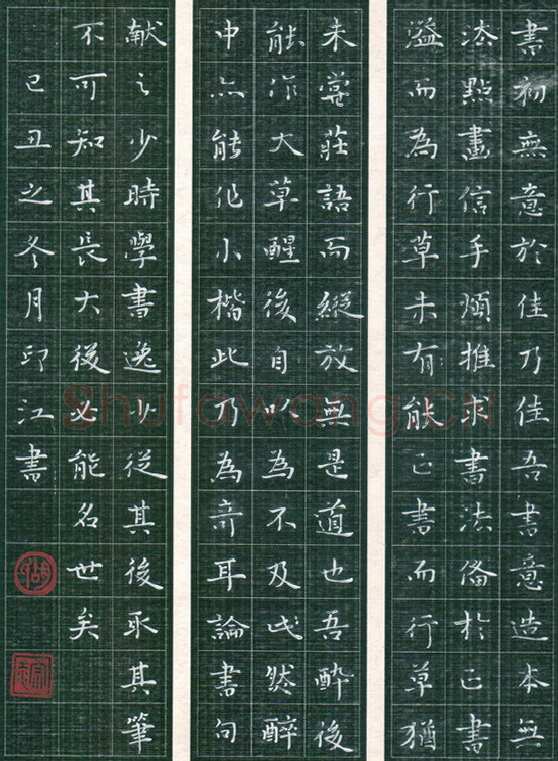 書初無意於佳乃佳吾書意造本無
法點畫信手煩推求書法備於正書
溢而為行草未有能正書而行草猶
未嘗莊語而縱放無是道也吾醉後
能作大草醒後自以為不及此然醉
中亦能作小楷此乃為奇耳論書句
献之少時學書逸少從其後取其筆
不可知其長大後必能名世矣
己丑之冬月印江書
Shufawang.cn